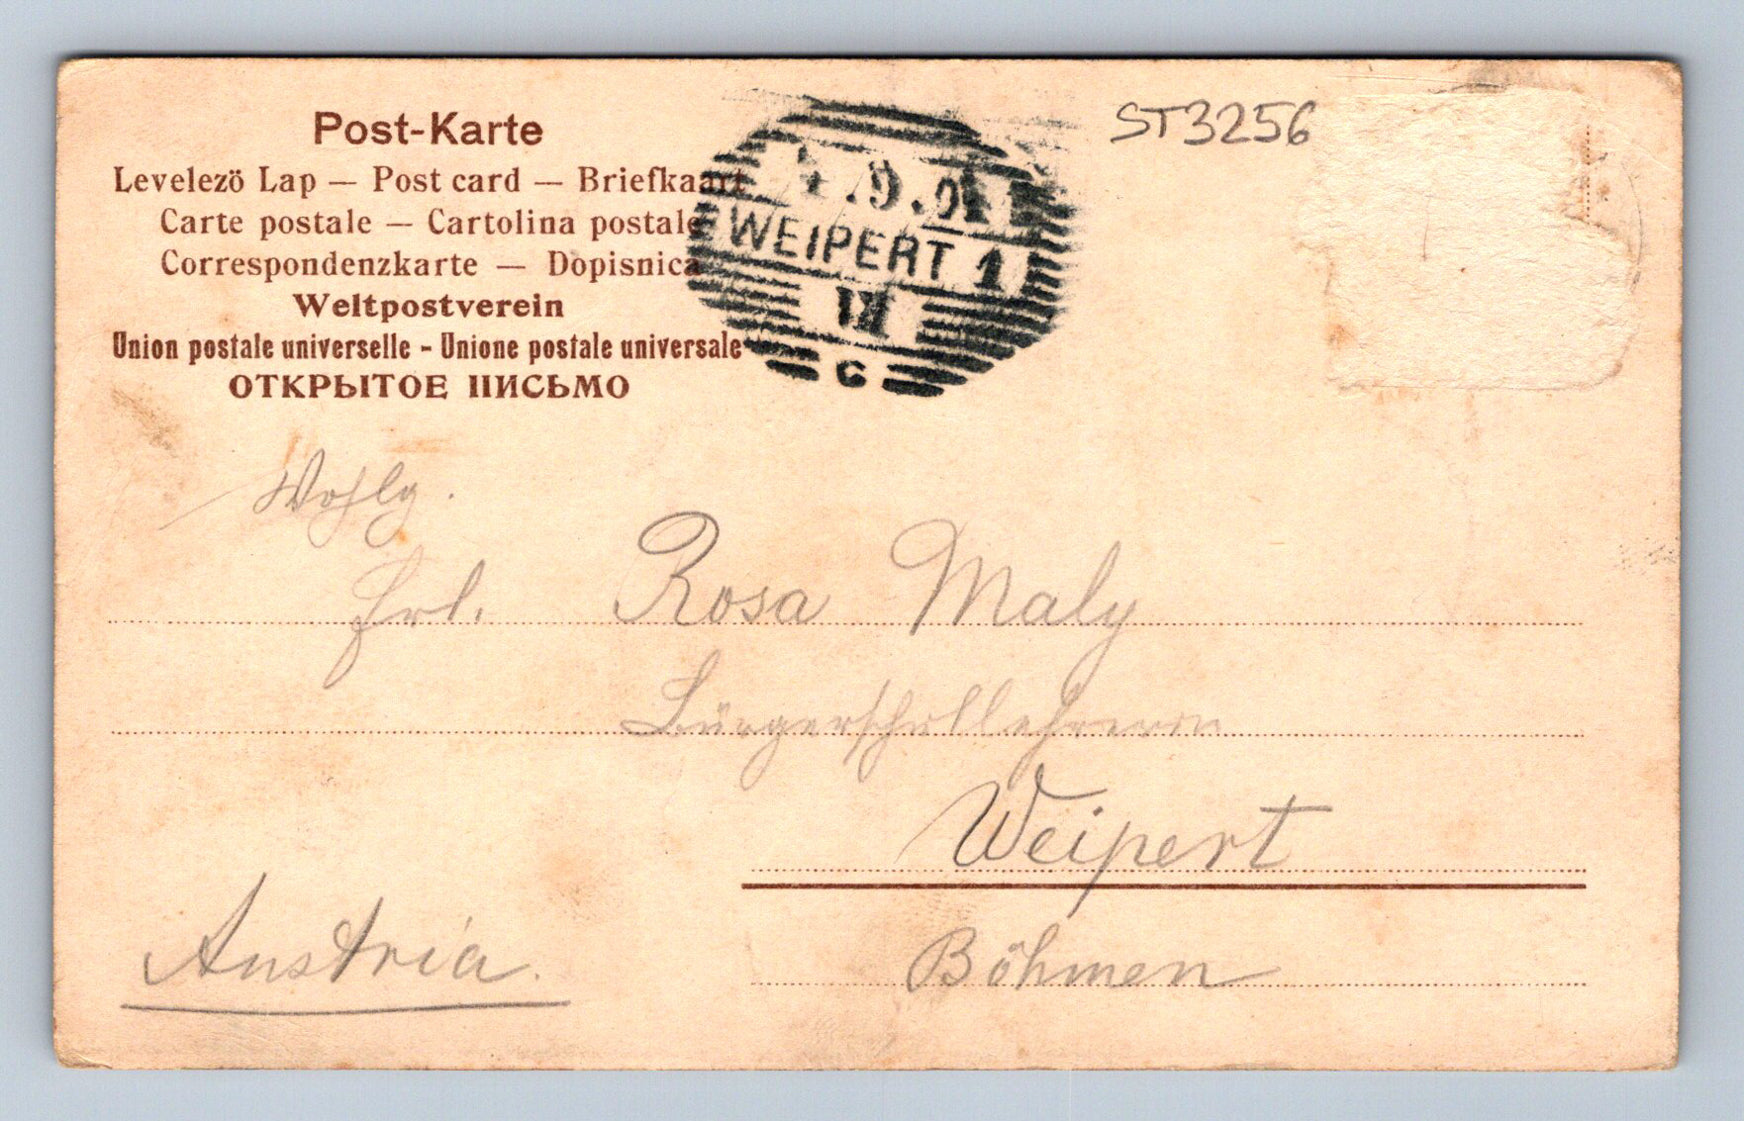 Post-Karte
Levelezö Lap — Post card — Briefkaart
Carte postale — Cartolina postale
Correspondenzkarte — Dopisnica
Weltpostverein
Union postale universelle - Unione postale universale
ОТКРЫТОЕ ПИСЬМО
WEIPERT 1
c
ST3256
Wohlg.
Frl. Rosa Maly
Bürgerschullehrerin
Weipert
Austria.
Böhmen